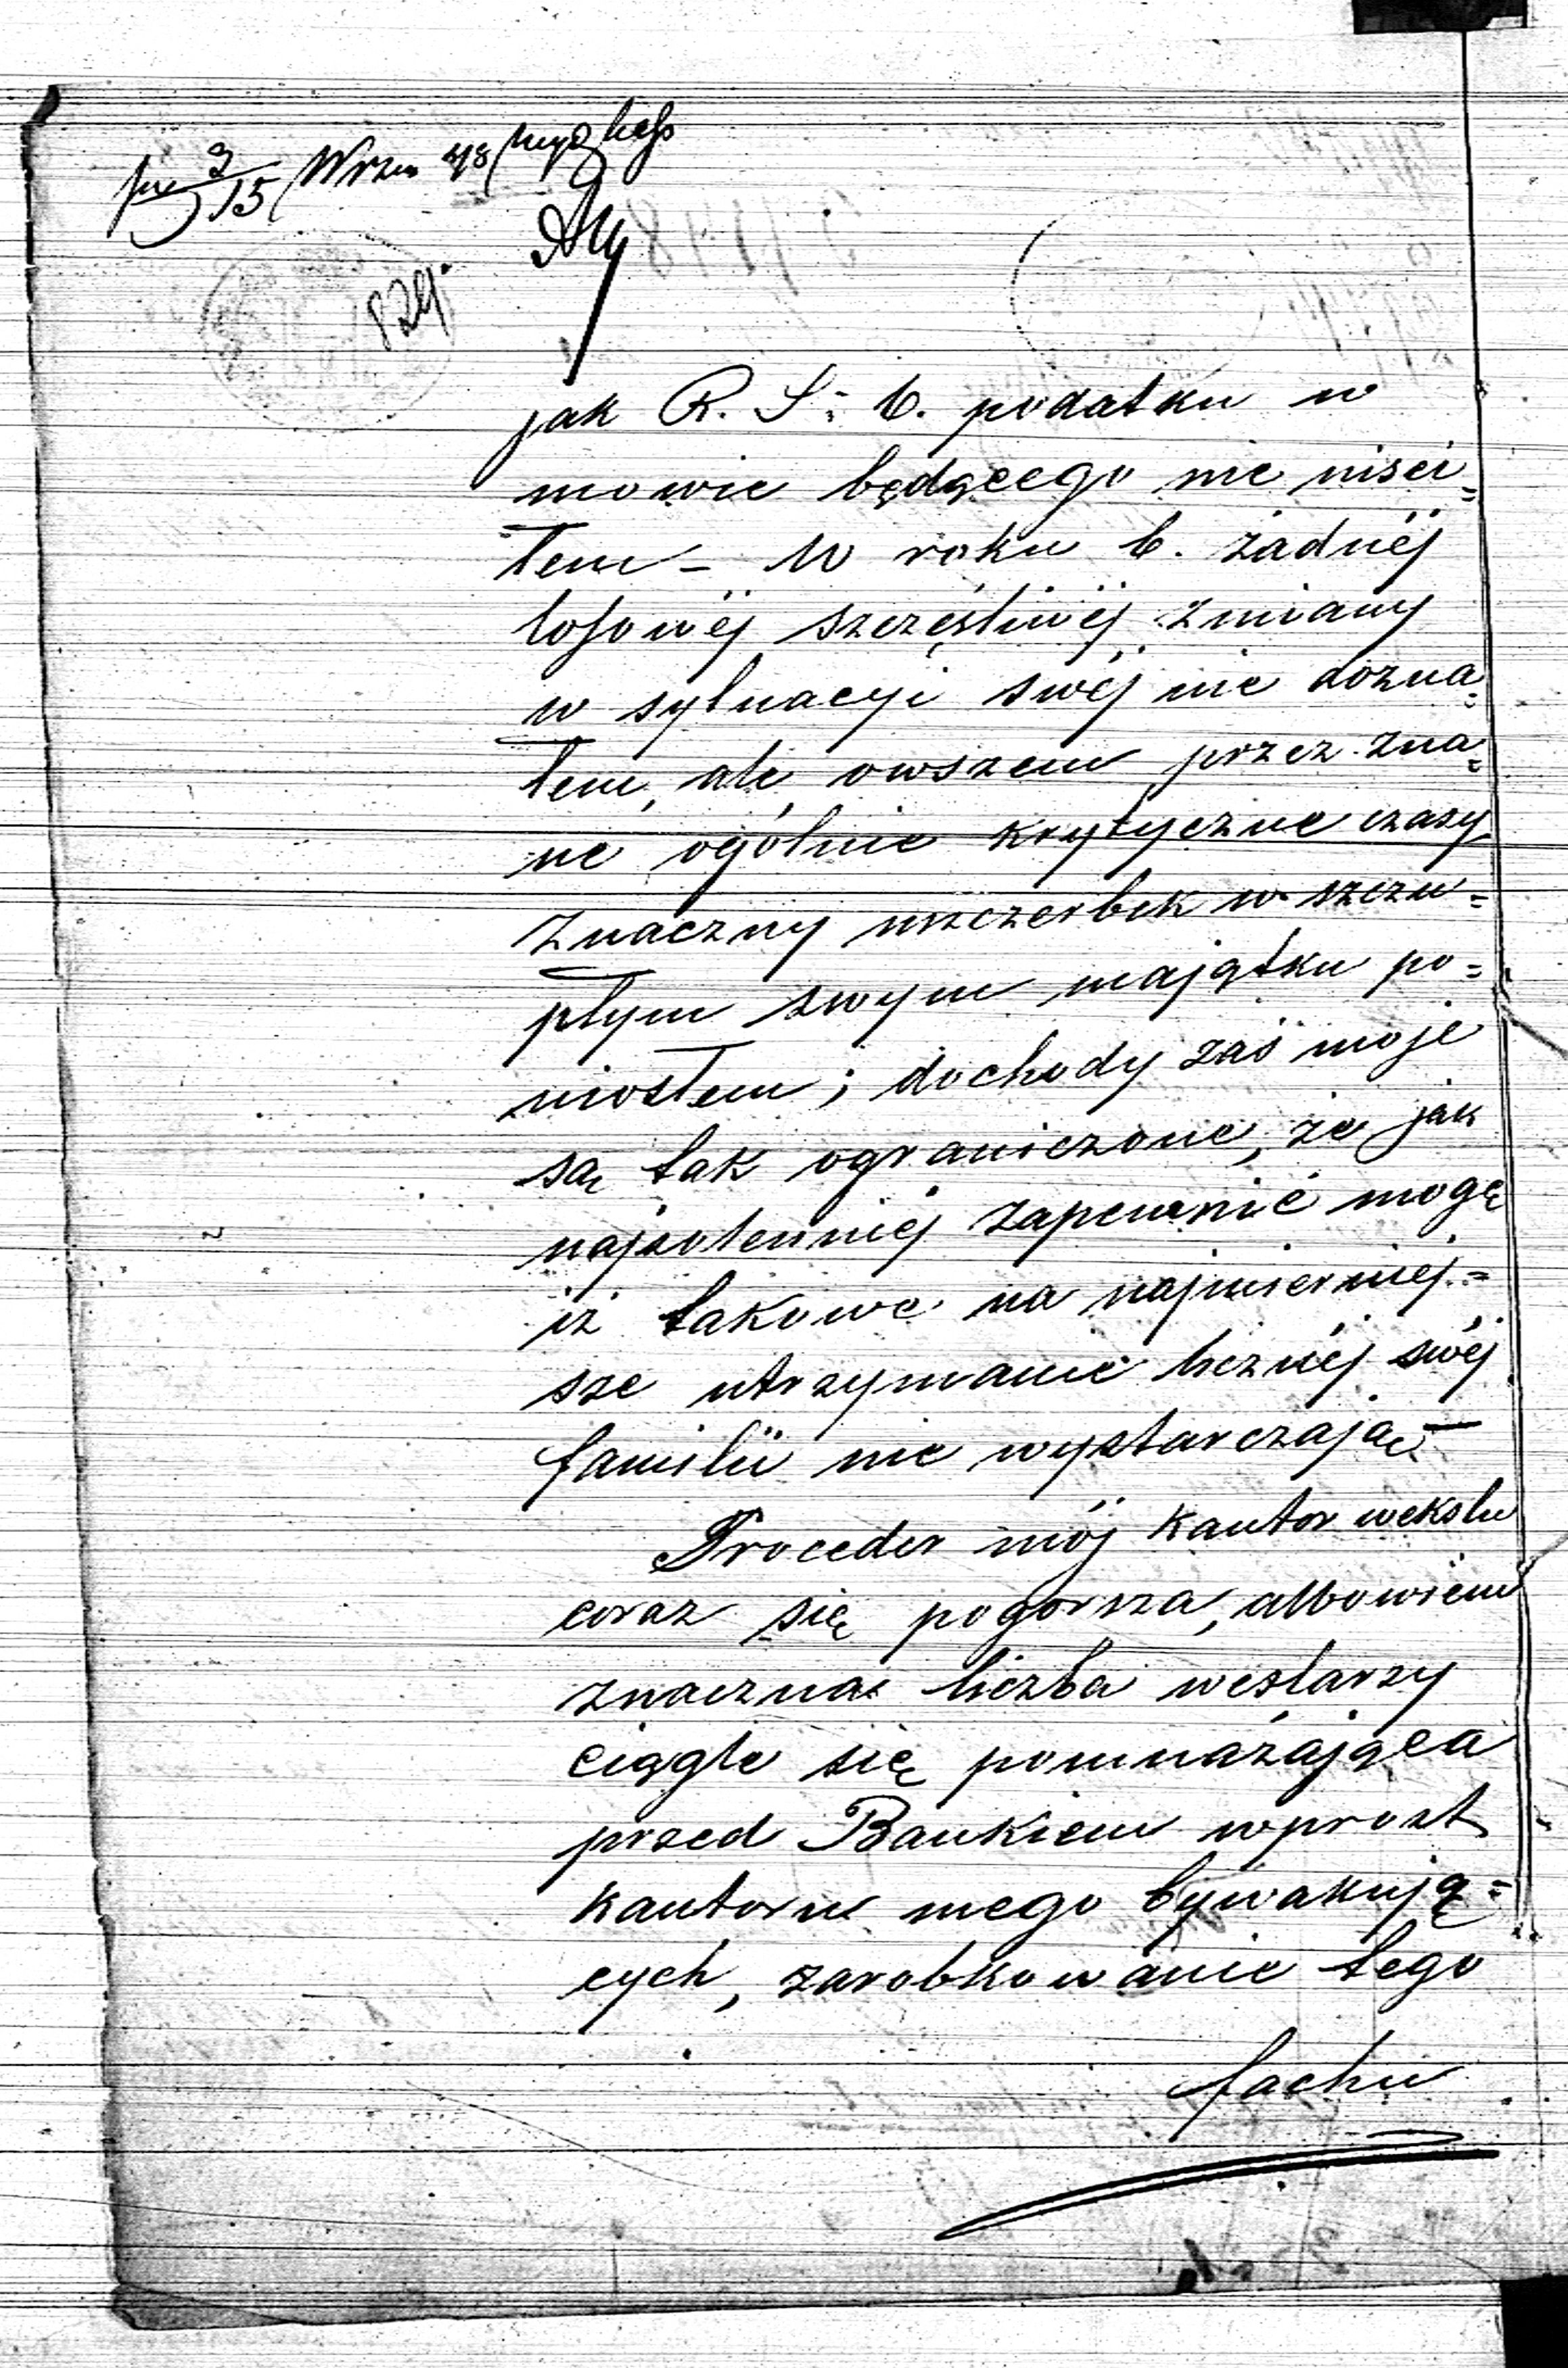 3/15 Wrzes 48
829.
jak R. S: 6. podatku w
mowie będącego nie uiści=
łem – W roku b. żadnéj
losowéj szczęśliwéj zmiany
w sytuacyi swéj nie dozna=
łem, ale owszem przez zna=
ne ogólnie krytyczne czasy
znaczny uszczerbek w szczu=
płym swym majątku po=
niosłem; dochody zaś moje
są tak ograniczone, że jak
najsolenniéj zapewnić mogę
iż takowe na najmierniej=
sze utrzymanie licznéj swéj
familii nie wystarczają –
Proceder mój kantor wekslu
coraz się pogorsza, albowiem
znaczna liczba wekslarzy
ciągle się pomnażająca
przed Bankiem wprost
kantoru mego bywakują=
cych, zarobkowanie tego
fachu